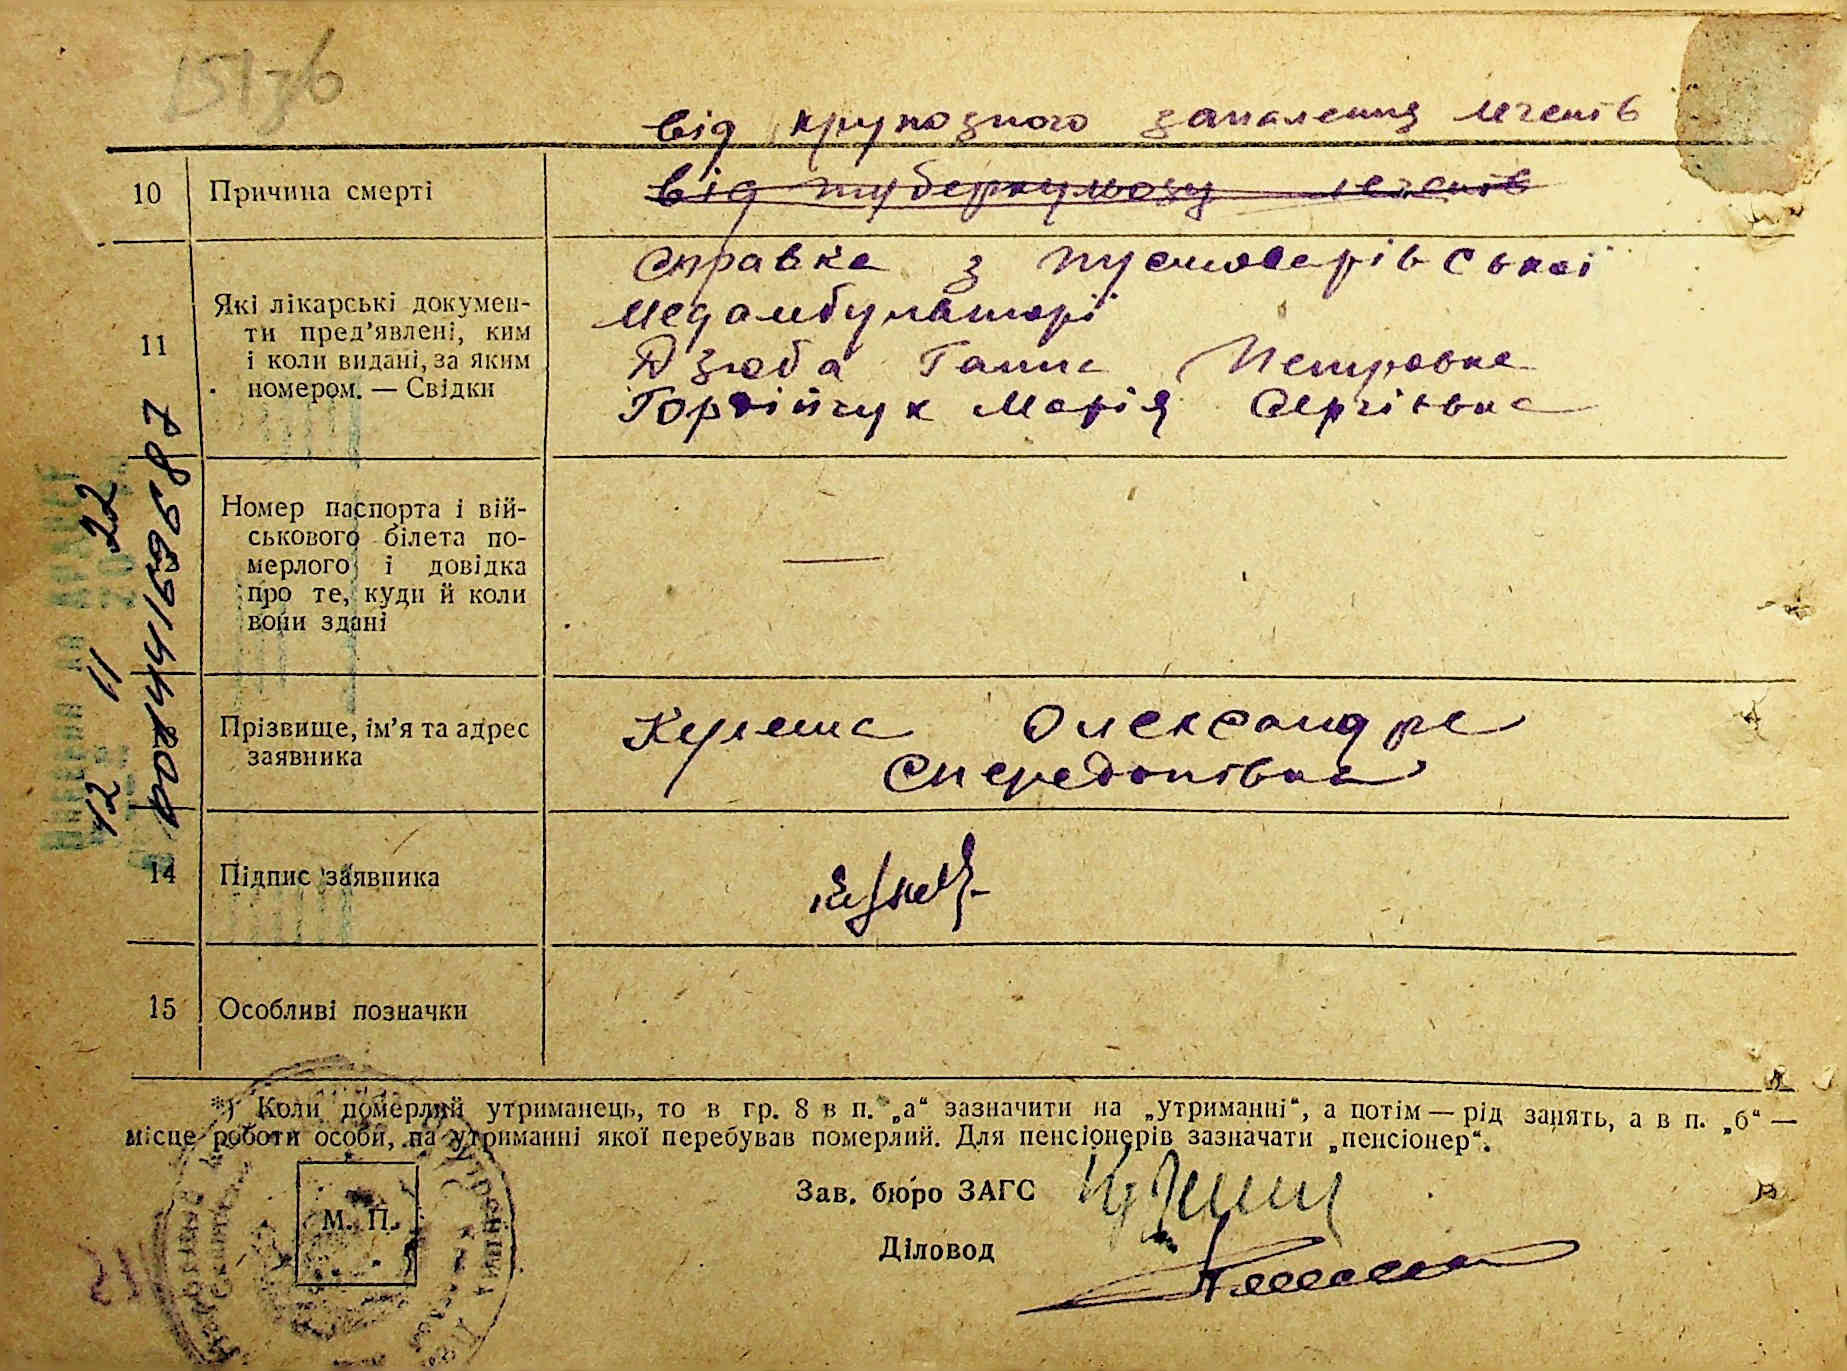 від крупозного запалення легенів
10 Причина смерті від туберкульозу легенів
Справка з Пустоварівської
Які лікарські докумен-
ти пред’явлені, ким
і коли видані, за яким
номером. — Свідки
11
медамбулаторії
Дзюба Ганна Петровна
Гордійчук Марія Сергіївна
Номер паспорта і вій-
ськового білета по-
мерлого і довідка
про те, куди й коли
вони здані
—
12 11 22
Прізвище, ім’я та адрес
заявника
Кулеша Олександра
Спередонівна
14 Підпис заявника
15 Особливі позначки
*) Коли померлий утриманець, то в гр. 8 в п. „а“ зазначити на „утриманні“, а потім — рід занять, а в п. „б“ —
місце роботи особи, на утриманні якої перебував померлий. Для пенсіонерів зазначати „пенсіонер“.
Зав. бюро ЗАГС
М. П.
Діловод